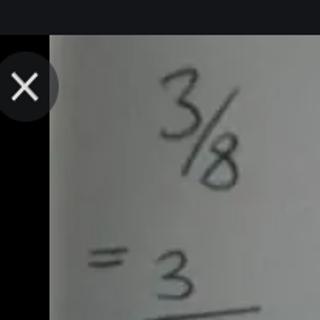 3/8
= 3